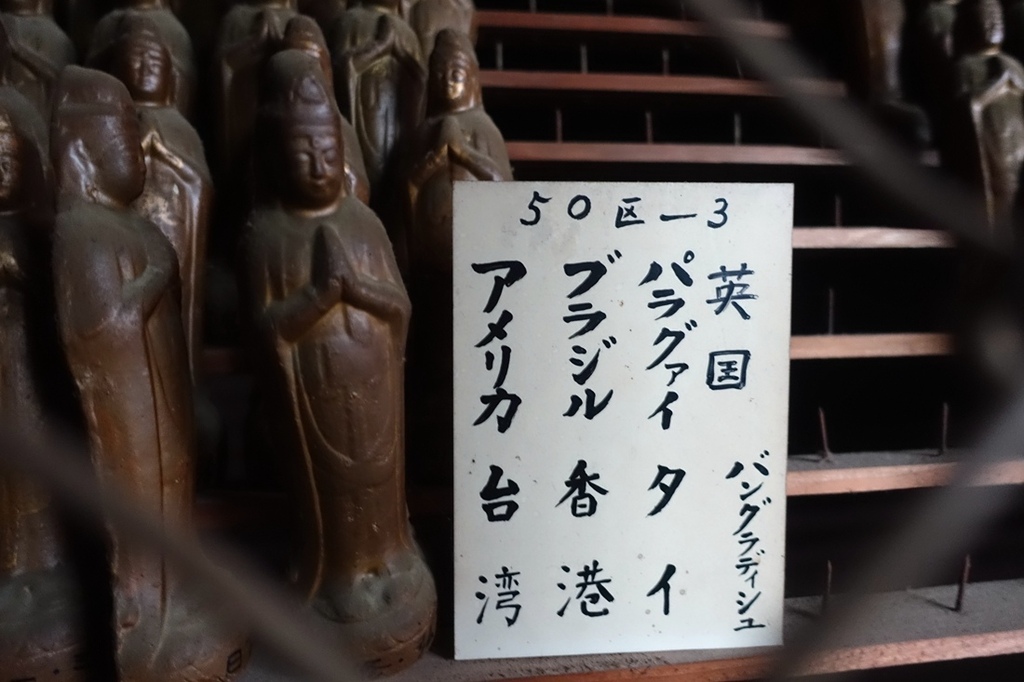 50区-3
英国 バングラディシュ
パラグァイ タイ
ブラジル 香港
アメリカ 台湾